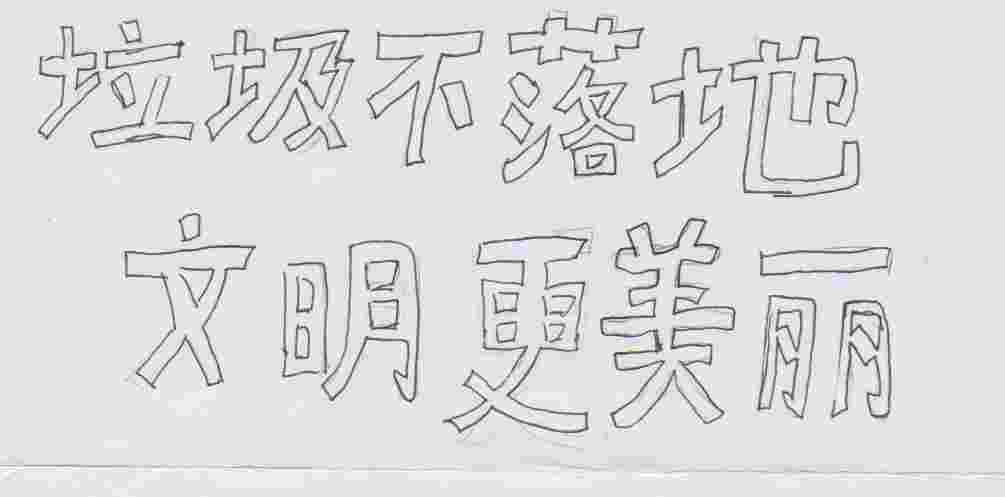 垃圾不落地
文明更美丽